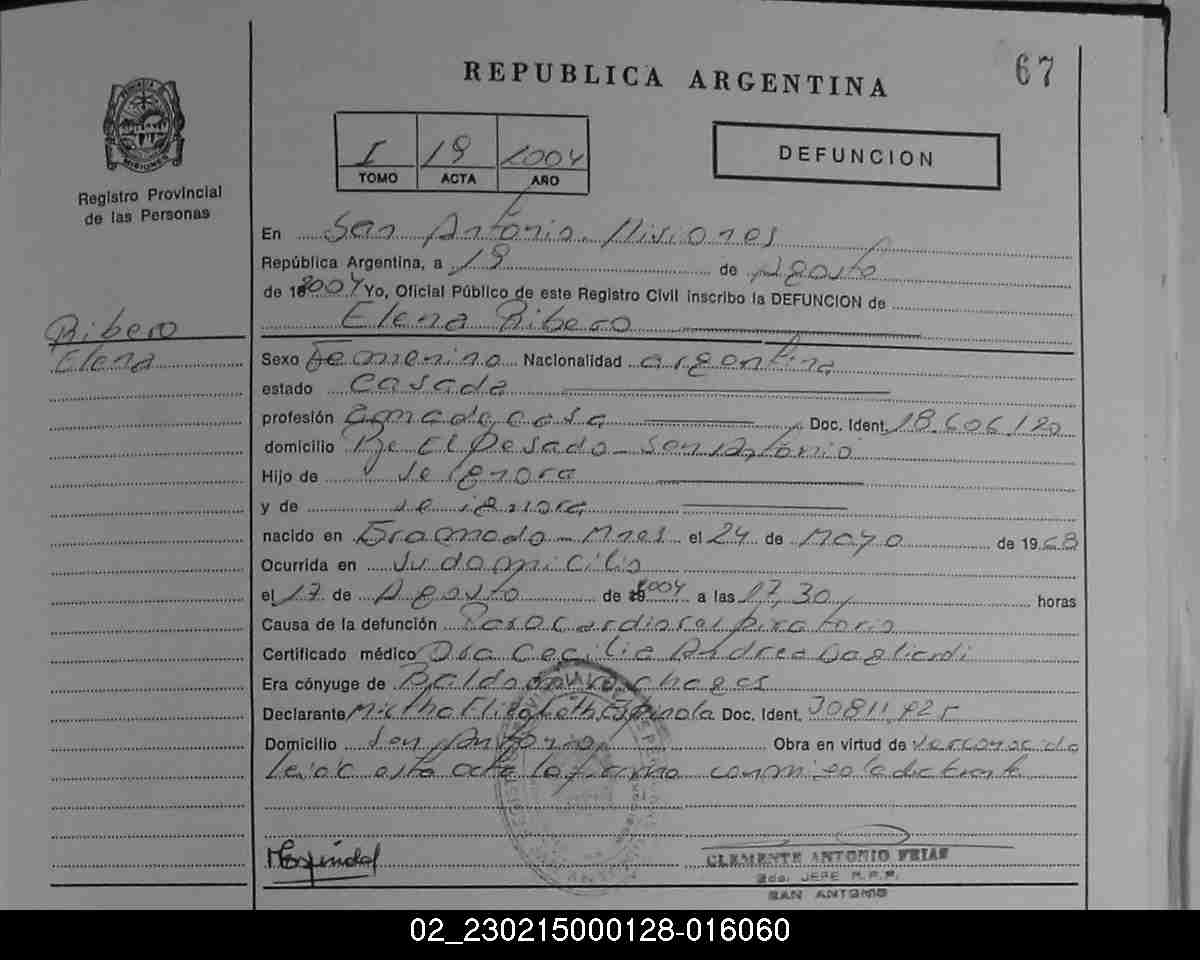 REPUBLICA ARGENTINA
67
MISIONES
Registro Provincial
de las Personas
I 19 2004
TOMO ACTA AÑO
DEFUNCION
En San Antonio. Misiones
República Argentina, a 19 de Agosto
de 2004 Yo, Oficial Público de este Registro Civil inscribo la DEFUNCION de
Elena Ribero
Ribero
Elena
Sexo Femenino Nacionalidad argentina
estado Casada
profesión Ama de casa Doc. Ident. 18.606.120
domicilio Pje El Pesado - San Antonio
Hijo de se ignora
y de se ignora
nacido en Gramado - Mnes el 24 de Mayo de 1968
Ocurrida en su domicilio
el 17 de Agosto de 2004 a las 17,30 horas
Causa de la defunción Paro Cardiorespiratorio
Certificado médico Dra Cecilia Andrea Gagliardi
Era cónyuge de Chagas
Declarante Mirtha Elizabeth Espinola Doc. Ident. 30811.925
Domicilio San Antonio, Obra en virtud de ser conocido
leida esta acta la firma conmigo la declarante
MEspindol
CLEMENTE ANTONIO FRIAS
2do. JEFE R.P.P.
SAN ANTONIO
02_230215000128-016060